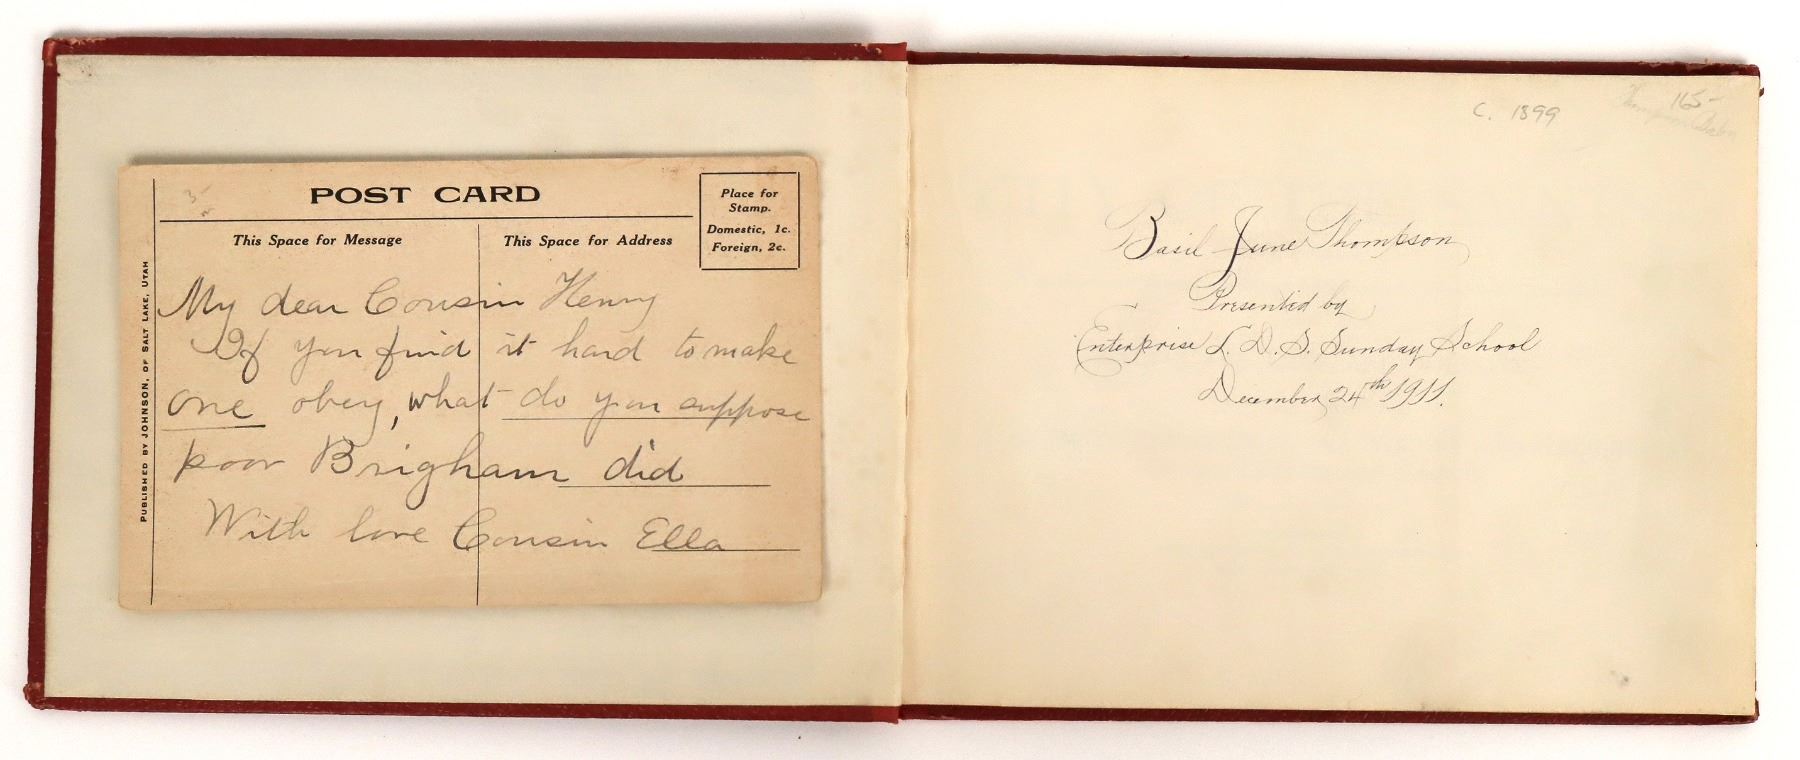 3-
POST CARD
Place for
Stamp.
Domestic, 1c.
Foreign, 2c.
This Space for Message
This Space for Address
PUBLISHED BY JOHNSON, OF SALT LAKE, UTAH
My dear Cousin Henry
If you find it hard to make
one obey, what do you suppose
poor Brigham did
With love Cousin Ella
c. 1899
165-
Basil June Thompson
Presented by
Enterprise L. D. S. Sunday School
December 24th 1911.